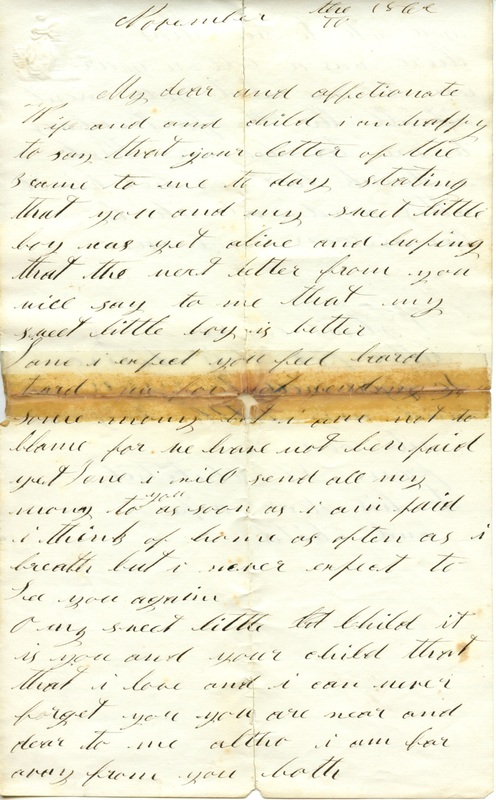 November the 18
10
My dear and affetionate
Wife and and child i am happy
to say that your letter of the
3 came to me to day stating
that you and my sweet little
boy was yet alive and hoping
that the next letter from you
will say to me that my
sweet little boy is better
Jane i expect you feel hard
hard me for not sending
some mony but i am not to
blame for we have not ben paid
yet Jane i will send all my
mony to you as soon as i am paid
i think of home as often as i
breath but i never expect to
See you again
O my sweet little Child it
is you and your child that
that i love and i can never
forget you you are near and
dear to me altho i am far
away from you both